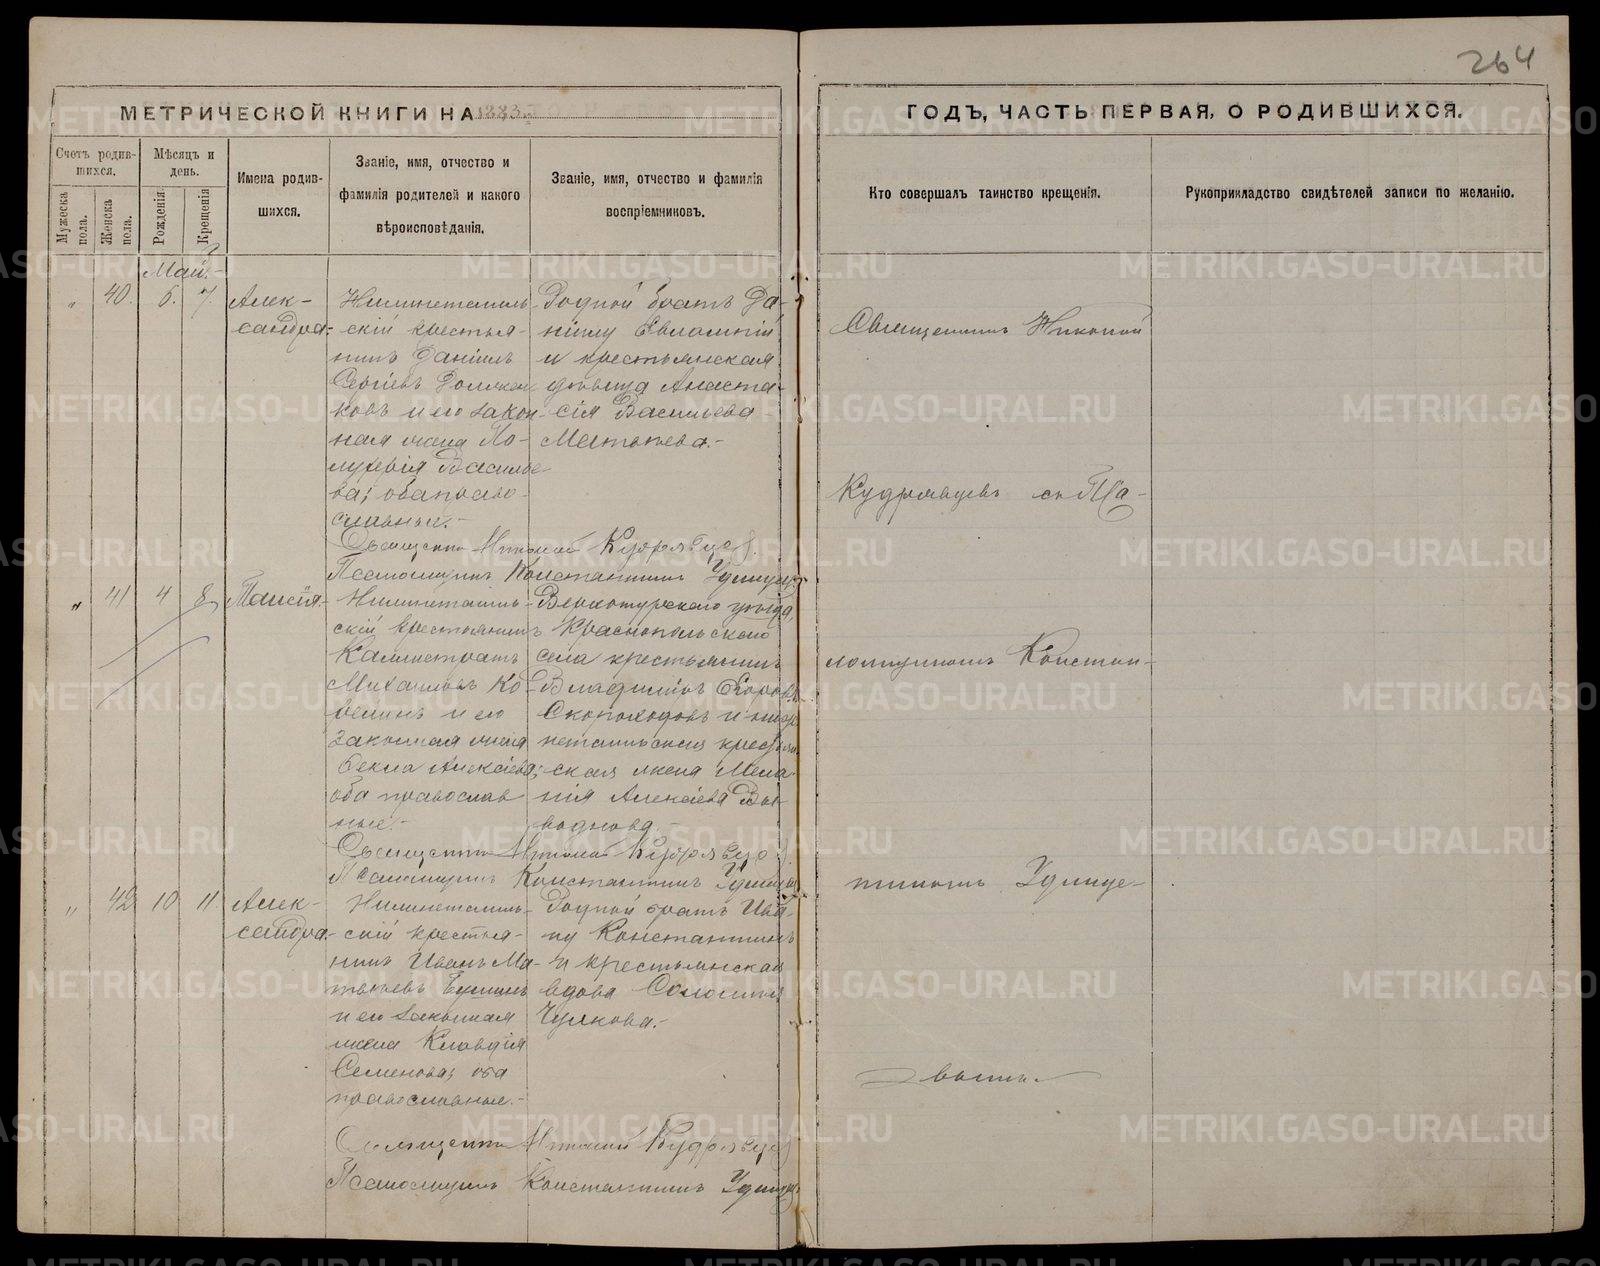 264
МЕТРИЧЕСКОЙ КНИГИ НА 1883
ГОДЪ, ЧАСТЬ ПЕРВАЯ, О РОДИВШИХСЯ.
Счетъ родив-
шихся.
Мѣсяцъ и
день.
Мужеска
пола.
Женска
пола.
Рожденія
Крещенія
Имена родив-
шихся.
Званіе, имя, отчество и
фамилія родителей и какого
вѣроисповѣданія.
Званіе, имя, отчество и фамилія
воспріемниковъ.
Кто совершалъ таинство крещенія.
Рукоприкладство свидѣтелей записи по желанію.
Май.
" 40. 6. 7.
Алек-
сандра.
Нижнетагиль-
скій крестья-
нинъ Даніилъ
Сергіевъ
ковъ и его закон
ная жена Пе-
Василье
ва; оба право-
славные.-
Родной братъ Да-
нiилу Евлампій
и крестьянская
дѣвица Анаста-
сія Васильева
Матвѣева.-
Священникъ Николай Кудрявцевъ.
Псаломщикъ Константинъ Удинцевъ
" 41 4 8
Таисія.
Нижнетагиль-
скій крестьянинъ
Каллистратъ
Михаиловъ Ко-
и его
законная жена
Ѳекла Алексѣева;
оба православ
ные.-
Верхотурскаго уѣзда,
Краснопольскаго
села крестьянинъ
Владиміръ
Скороходовъ и ниж
нетагильская крестьян
ская жена Мела-
нія Алексѣева
.-
Священникъ Николай Кудрявцевъ.
Псаломщикъ Константинъ Удинцевъ
" 42 10 11
Алек-
сандра.-
Нижнетагиль-
скій крестья-
нинъ Иванъ Ма-
твѣевъ
и его законная
жена Клавдія
Семенова; оба
православные.-
Родной братъ Ива-
ну Константинъ
и крестьянская
вдова
Чулкова.-
Священникъ Николай Кудрявцевъ
Псаломщикъ Константинъ Удинцевъ
Священникъ Николай
Кудрявцевъ съ Пса-
ломщикомъ Констан-
тиномъ Удинце-
вымъ.-
METRIKI.GASO-URAL.RU